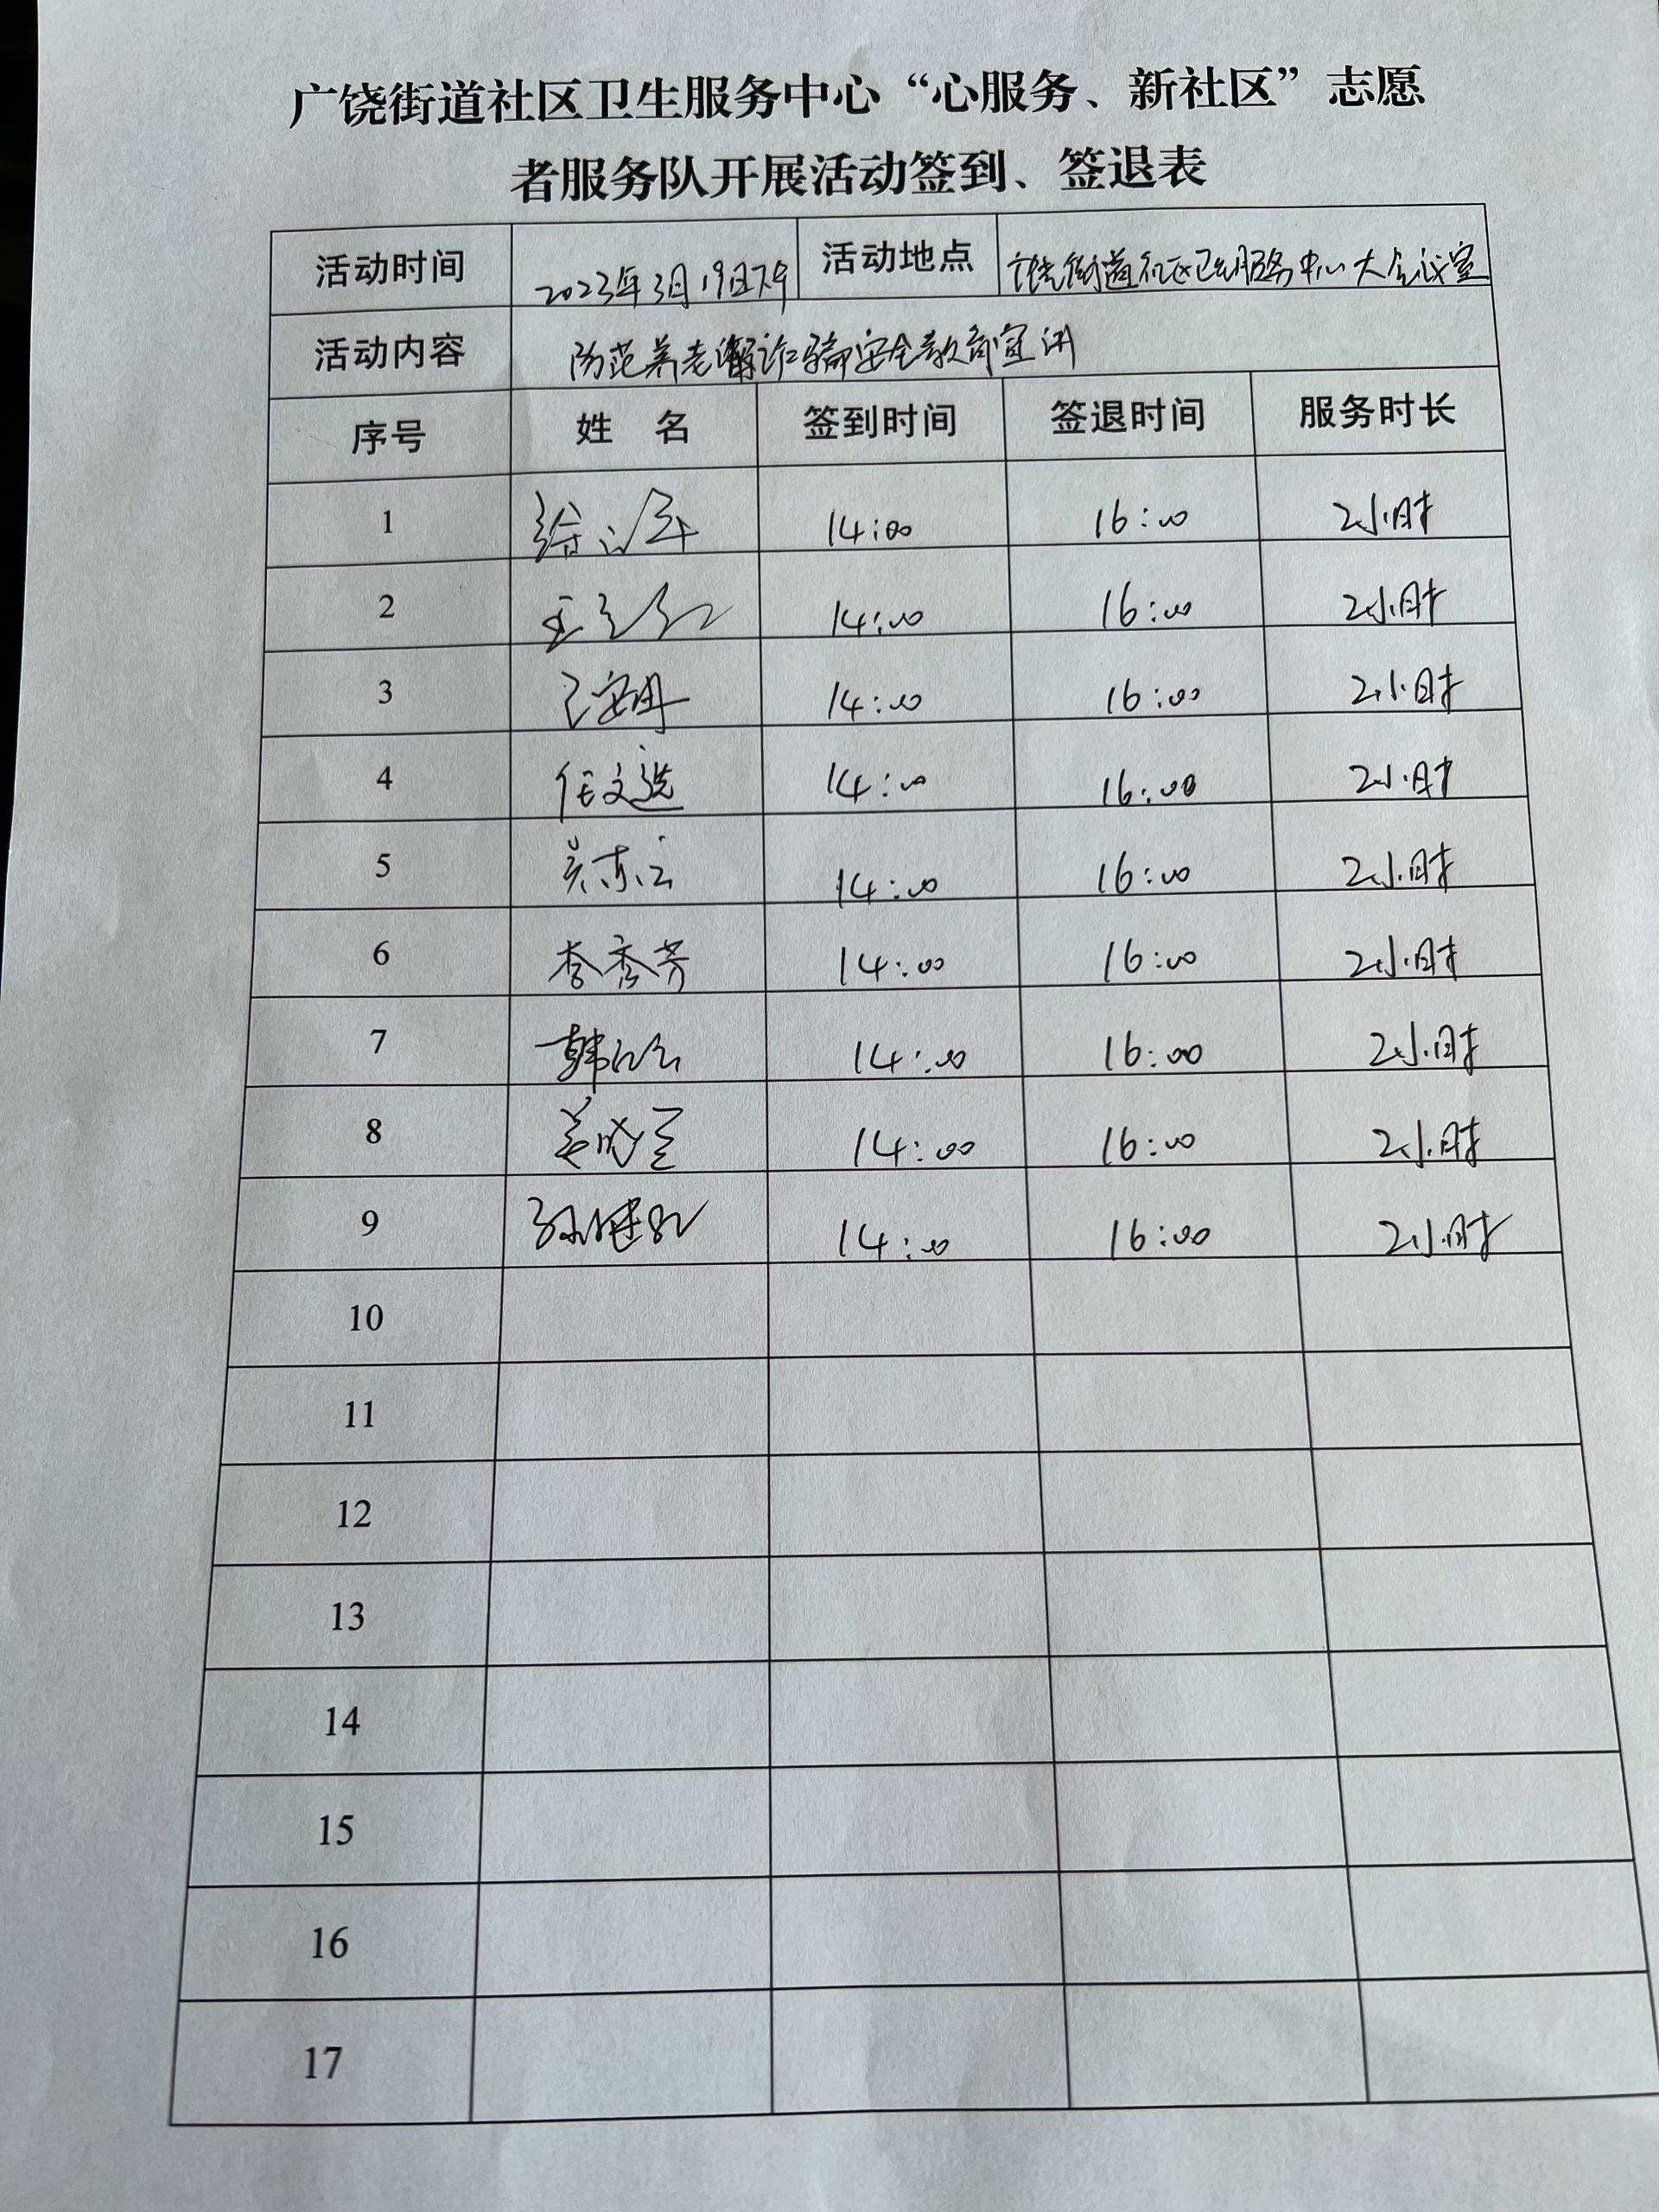 广饶街道社区卫生服务中心“心服务、新社区”志愿
者服务队开展活动签到、签退表
活动时间 2023年3月19日下午 活动地点 广饶街道社区卫生服务中心大会议室
活动内容 防范养老诈骗安全教育宣讲
序号 姓 名 签到时间 签退时间 服务时长
1 14:00 16:00 2小时
2 14:00 16:00 2小时
3 14:00 16:00 2小时
4 任文选 14:00 16:00 2小时
5 14:00 16:00 2小时
6 李秀芳 14:00 16:00 2小时
7 韩 14:00 16:00 2小时
8 姜 14:00 16:00 2小时
9 孙 14:00 16:00 2小时
10
11
12
13
14
15
16
17